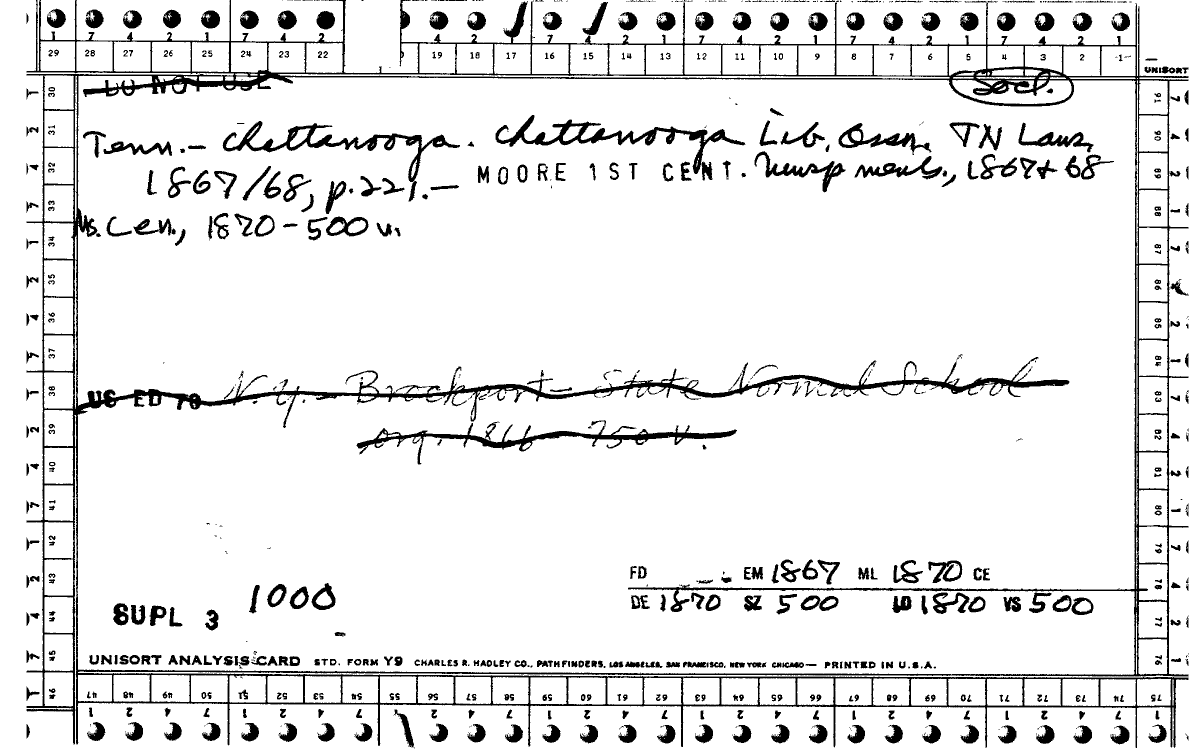 1 7 4 2 1 7 4 2 4 2 1 7 4 2 1 7 4 2 1 7 4 2 1 7 4 2 1
29 28 27 26 25 24 23 22 19 18 17 16 15 14 13 12 11 10 9 8 7 6 5 4 3 2 1
UNISORT
DO NOT USE
Socl.
Tenn.- Chattanooga. Chattanooga Lib. Assn. TN Laws,
1867/68, p.221.- MOORE 1ST CENT. Newsp ments., 1867+68
Ms. Cen., 1870-500 v.
US ED 70 N.Y.- Brockport- State Normal School
org. 1866 750 v.
FD EM 1867 ML 1870 CE
SUPL 3 1000 DE 1870 SZ 500 LD 1870 VS 500
UNISORT ANALYSIS CARD STD. FORM Y9 CHARLES R. HADLEY CO., PATHFINDERS, LOS ANGELES, SAN FRANCISCO, NEW YORK CHICAGO— PRINTED IN U.S.A.
47 48 49 50 51 52 53 54 55 56 57 58 59 60 61 62 63 64 65 66 67 68 69 70 71 72 73 74 75
30 31 32 33 34 35 36 37 38 39 40 41 42 43 44 45 46
91 90 89 88 87 86 85 84 83 82 81 80 79 78 77 76